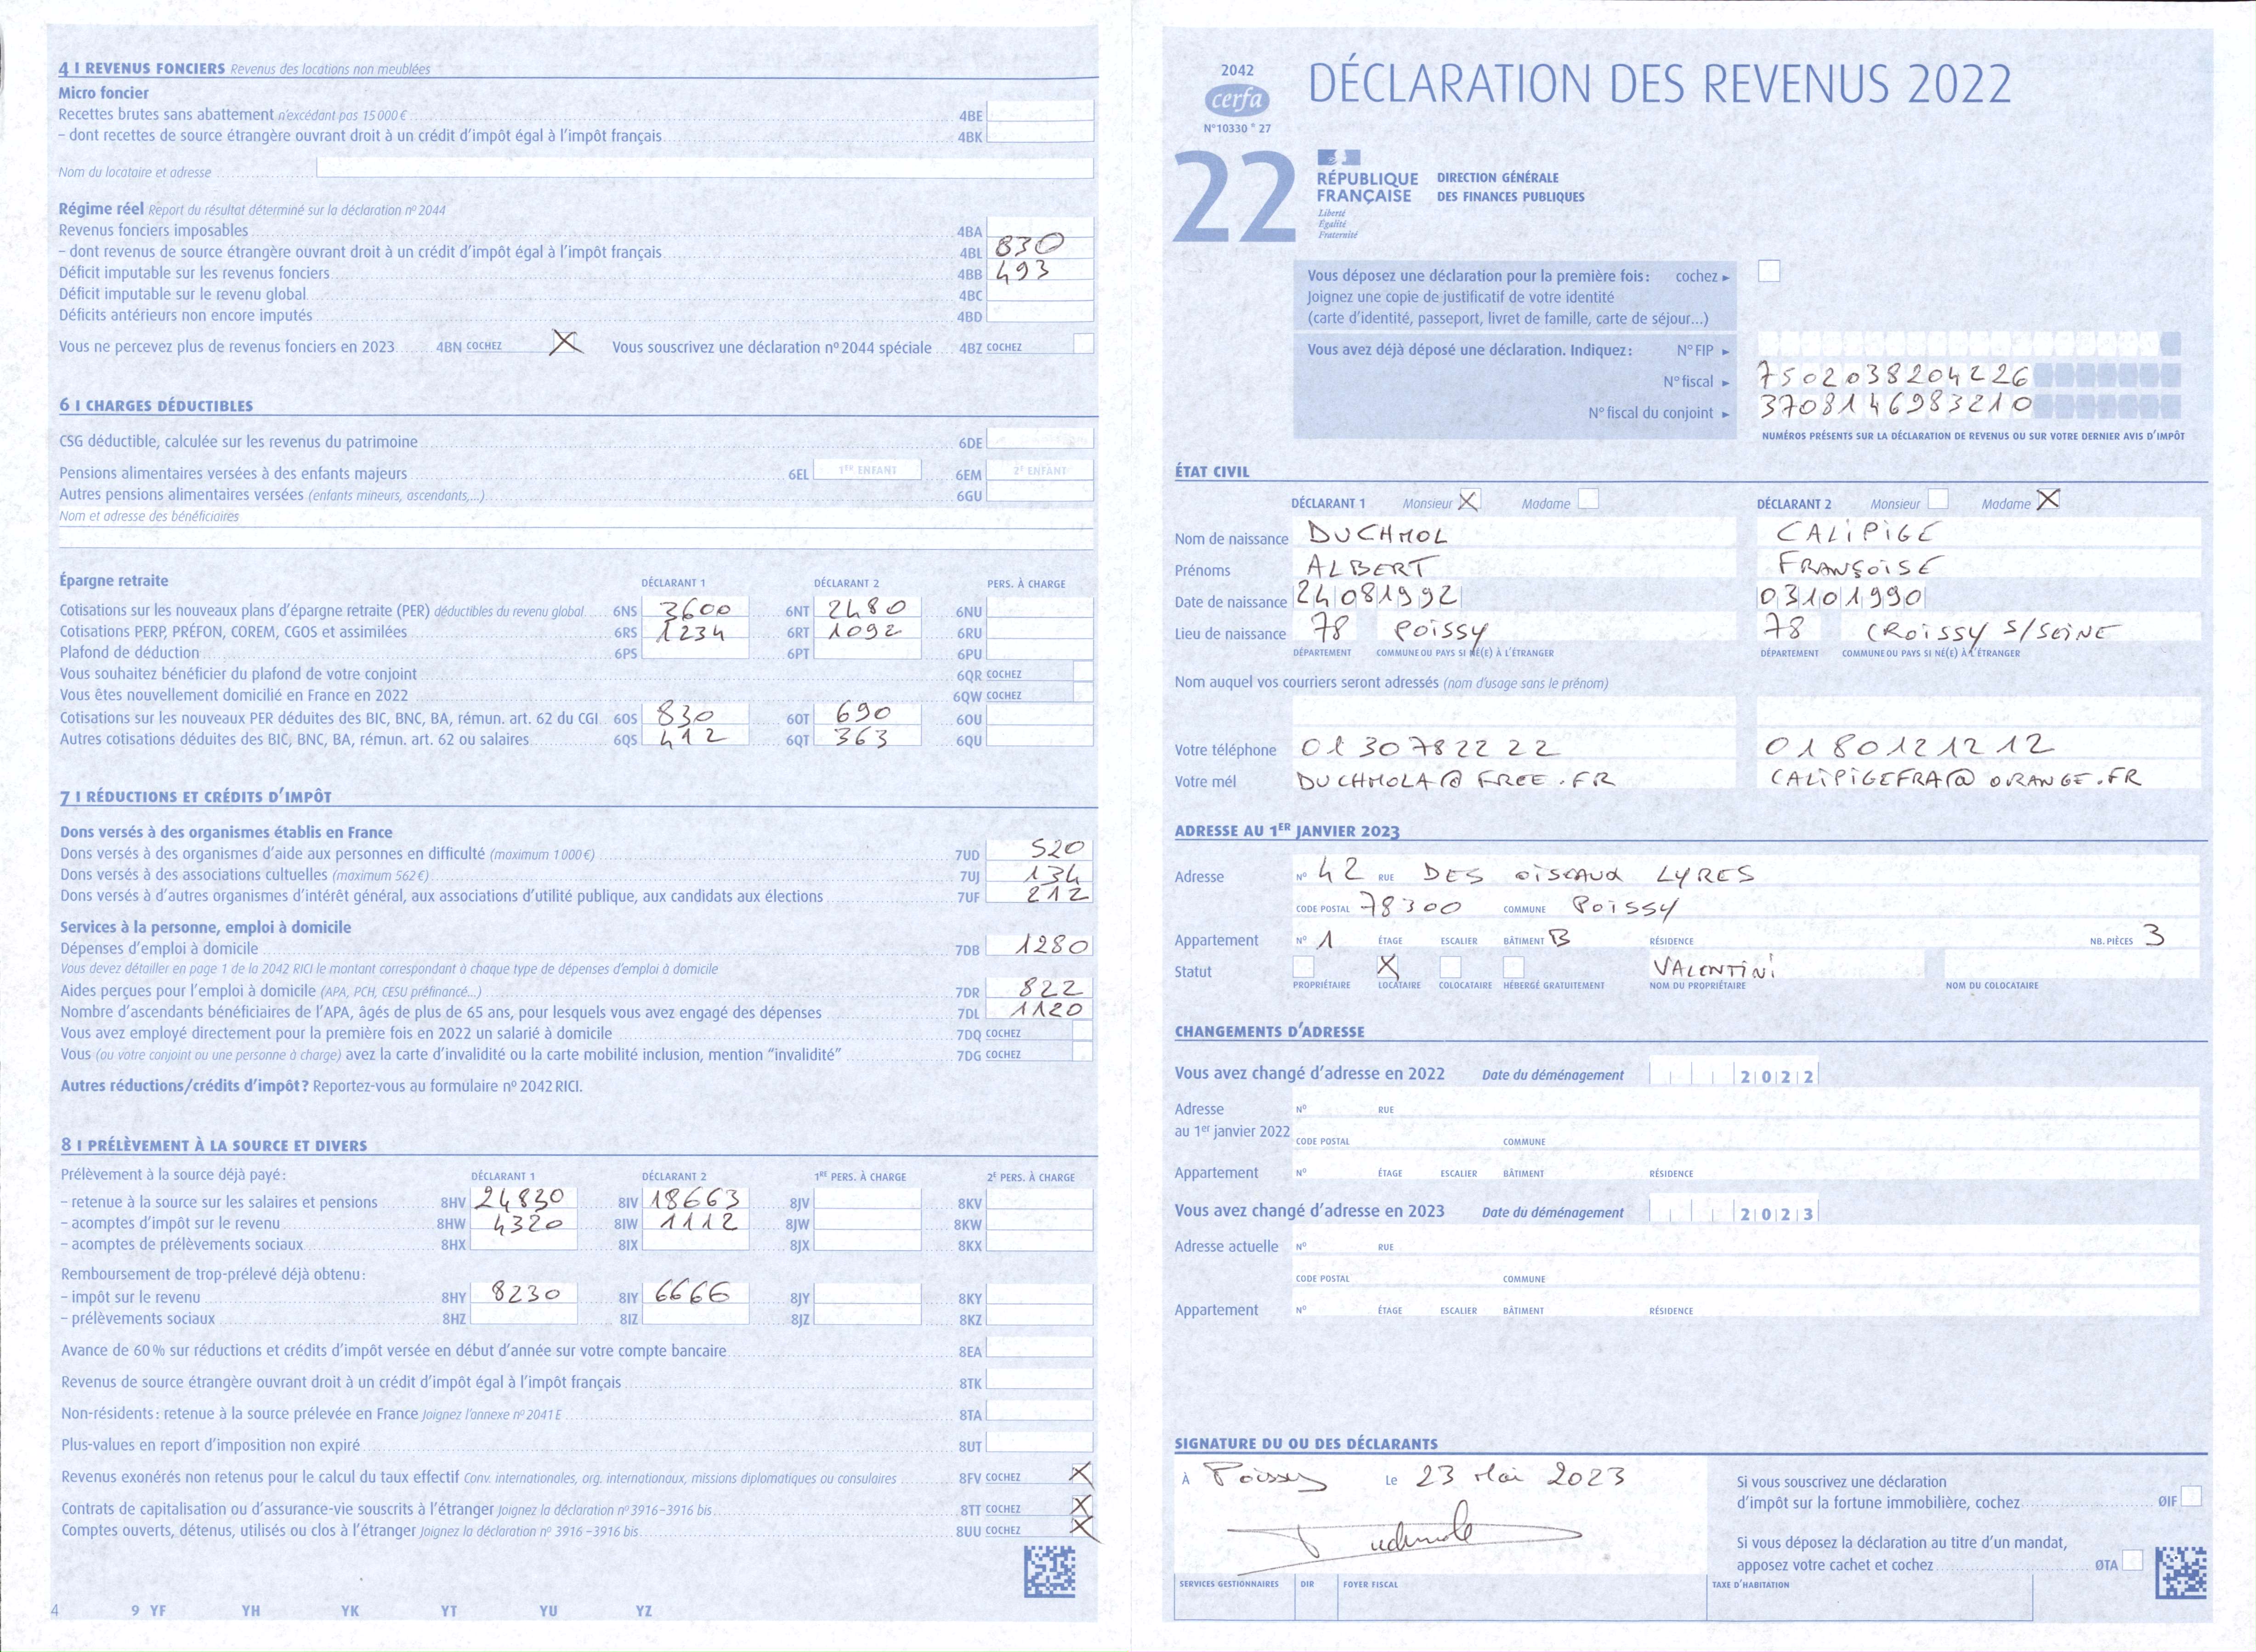 4 | REVENUS FONCIERS Revenus des locations non meublées
Micro foncier
Recettes brutes sans abattement n'excédant pas 15 000 € 4BE
– dont recettes de source étrangère ouvrant droit à un crédit d'impôt égal à l'impôt français 4BK
Nom du locataire et adresse
Régime réel Report du résultat déterminé sur la déclaration nº 2044
Revenus fonciers imposables 4BA
– dont revenus de source étrangère ouvrant droit à un crédit d'impôt égal à l'impôt français 4BL 830
Déficit imputable sur les revenus fonciers 4BB 493
Déficit imputable sur le revenu global 4BC
Déficits antérieurs non encore imputés 4BD
Vous ne percevez plus de revenus fonciers en 2023 4BN COCHEZ X Vous souscrivez une déclaration nº 2044 spéciale 4BZ COCHEZ
6 | CHARGES DÉDUCTIBLES
CSG déductible, calculée sur les revenus du patrimoine 6DE
Pensions alimentaires versées à des enfants majeurs 6EL 1ER ENFANT 6EM 2E ENFANT
Autres pensions alimentaires versées (enfants mineurs, ascendants,...) 6GU
Nom et adresse des bénéficiaires
Épargne retraite DÉCLARANT 1 DÉCLARANT 2 PERS. À CHARGE
Cotisations sur les nouveaux plans d'épargne retraite (PER) déductibles du revenu global 6NS 3600 6NT 2480 6NU
Cotisations PERP, PRÉFON, COREM, CGOS et assimilées 6RS 1234 6RT 1092 6RU
Plafond de déduction 6PS 6PT 6PU
Vous souhaitez bénéficier du plafond de votre conjoint 6QR COCHEZ
Vous êtes nouvellement domicilié en France en 2022 6QW COCHEZ
Cotisations sur les nouveaux PER déduites des BIC, BNC, BA, rémun. art. 62 du CGI 6OS 830 6OT 690 6OU
Autres cotisations déduites des BIC, BNC, BA, rémun. art. 62 ou salaires 6QS 412 6QT 363 6QU
7 | RÉDUCTIONS ET CRÉDITS D'IMPÔT
Dons versés à des organismes établis en France
Dons versés à des organismes d'aide aux personnes en difficulté (maximum 1 000 €) 7UD 520
Dons versés à des associations cultuelles (maximum 562 €) 7UJ 134
Dons versés à d'autres organismes d'intérêt général, aux associations d'utilité publique, aux candidats aux élections 7UF 212
Services à la personne, emploi à domicile
Dépenses d'emploi à domicile 7DB 1280
Vous devez détailler en page 1 de la 2042 RICI le montant correspondant à chaque type de dépenses d'emploi à domicile
Aides perçues pour l'emploi à domicile (APA, PCH, CESU préfinancé...) 7DR 822
Nombre d'ascendants bénéficiaires de l'APA, âgés de plus de 65 ans, pour lesquels vous avez engagé des dépenses 7DL 1120
Vous avez employé directement pour la première fois en 2022 un salarié à domicile 7DQ COCHEZ
Vous (ou votre conjoint ou une personne à charge) avez la carte d'invalidité ou la carte mobilité inclusion, mention "invalidité" 7DG COCHEZ
Autres réductions/crédits d'impôt ? Reportez-vous au formulaire nº 2042 RICI.
8 | PRÉLÈVEMENT À LA SOURCE ET DIVERS
Prélèvement à la source déjà payé : DÉCLARANT 1 DÉCLARANT 2 1RE PERS. À CHARGE 2E PERS. À CHARGE
– retenue à la source sur les salaires et pensions 8HV 24830 8IV 18663 8JV 8KV
– acomptes d'impôt sur le revenu 8HW 4320 8IW 1112 8JW 8KW
– acomptes de prélèvements sociaux 8HX 8IX 8JX 8KX
Remboursement de trop-prélevé déjà obtenu :
– impôt sur le revenu 8HY 8230 8IY 6666 8JY 8KY
– prélèvements sociaux 8HZ 8IZ 8JZ 8KZ
Avance de 60 % sur réductions et crédits d'impôt versée en début d'année sur votre compte bancaire 8EA
Revenus de source étrangère ouvrant droit à un crédit d'impôt égal à l'impôt français 8TK
Non-résidents : retenue à la source prélevée en France Joignez l'annexe nº 2041 E 8TA
Plus-values en report d'imposition non expiré 8UT
Revenus exonérés non retenus pour le calcul du taux effectif Conv. internationales, org. internationaux, missions diplomatiques ou consulaires 8FV COCHEZ X
Contrats de capitalisation ou d'assurance-vie souscrits à l'étranger Joignez la déclaration nº 3916–3916 bis 8TT COCHEZ X
Comptes ouverts, détenus, utilisés ou clos à l'étranger Joignez la déclaration nº 3916–3916 bis 8UU COCHEZ X
4 9 YF YH YK YT YU YZ
2042
cerfa
N° 10330 * 27
DÉCLARATION DES REVENUS 2022
22
RÉPUBLIQUE FRANÇAISE
Liberté
Égalité
Fraternité
DIRECTION GÉNÉRALE
DES FINANCES PUBLIQUES
Vous déposez une déclaration pour la première fois : cochez ►
Joignez une copie de justificatif de votre identité
(carte d'identité, passeport, livret de famille, carte de séjour...)
Vous avez déjà déposé une déclaration. Indiquez : N° FIP ►
N° fiscal ► 7502038204226
N° fiscal du conjoint ► 3708146983210
NUMÉROS PRÉSENTS SUR LA DÉCLARATION DE REVENUS OU SUR VOTRE DERNIER AVIS D'IMPÔT
ÉTAT CIVIL
DÉCLARANT 1 Monsieur X Madame DÉCLARANT 2 Monsieur Madame X
Nom de naissance DUCHMOL CALIPIGE
Prénoms ALBERT FRANÇOISE
Date de naissance 24081992 03101990
Lieu de naissance 78 POISSY 78 CROISSY S/SEINE
DÉPARTEMENT COMMUNE OU PAYS SI NÉ(E) À L'ÉTRANGER DÉPARTEMENT COMMUNE OU PAYS SI NÉ(E) À L'ÉTRANGER
Nom auquel vos courriers seront adressés (nom d'usage sans le prénom)
Votre téléphone 01 30 78 22 22 01 80 12 12 12
Votre mél DUCHMOLA@FREE.FR CALIPIGEFRA@ORANGE.FR
ADRESSE AU 1ER JANVIER 2023
Adresse N° 42 RUE DES OISEAUX LYRES
CODE POSTAL 78300 COMMUNE POISSY
Appartement N° 1 ÉTAGE ESCALIER BÂTIMENT B RÉSIDENCE NB. PIÈCES 3
Statut X VALENTINI
PROPRIÉTAIRE LOCATAIRE COLOCATAIRE HÉBERGÉ GRATUITEMENT NOM DU PROPRIÉTAIRE NOM DU COLOCATAIRE
CHANGEMENTS D'ADRESSE
Vous avez changé d'adresse en 2022 Date du déménagement 2022
Adresse N° RUE
au 1er janvier 2022 CODE POSTAL COMMUNE
Appartement N° ÉTAGE ESCALIER BÂTIMENT RÉSIDENCE
Vous avez changé d'adresse en 2023 Date du déménagement 2023
Adresse actuelle N° RUE
CODE POSTAL COMMUNE
Appartement N° ÉTAGE ESCALIER BÂTIMENT RÉSIDENCE
SIGNATURE DU OU DES DÉCLARANTS
À Poissy Le 23 Mai 2023
Si vous souscrivez une déclaration
d'impôt sur la fortune immobilière, cochez ØIF
Si vous déposez la déclaration au titre d'un mandat,
apposez votre cachet et cochez ØTA
SERVICES GESTIONNAIRES DIR FOYER FISCAL TAXE D'HABITATION